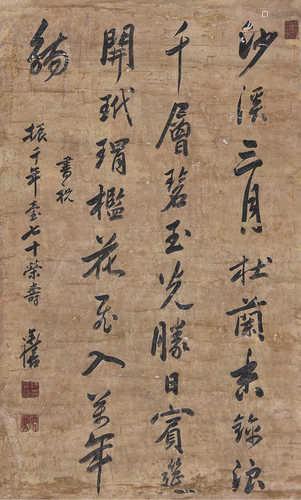 沙溪三月杜蘭香綠浪
千層碧玉光勝日賓筵
開玳瑁檻花飛入萬年
觴
書祝
振千年臺七十榮壽